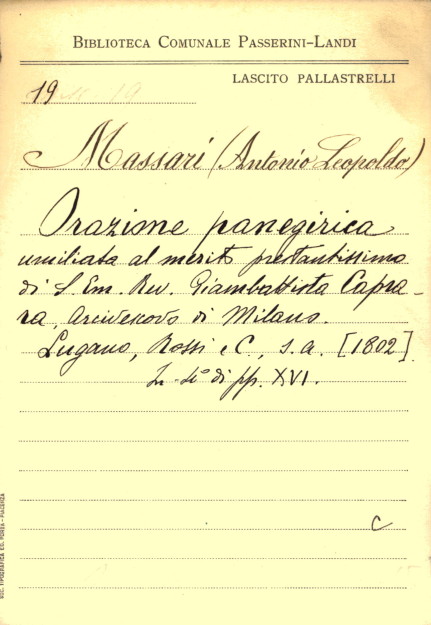 BIBLIOTECA COMUNALE PASSERINI-LANDI
LASCITO PALLASTRELLI
19
Massari (Antonio Leopoldo)
Orazione panegirica
umiliata al merito prestantissimo
di S. Em. Rev. Giambattista Capra-
ra, Arcivescovo di Milano.
Lugano, Rossi e C., s.a. [1802]
In-4° di pp. XVI.
C
SOC. TIPOGRAFICA ED. PORTA - PIACENZA